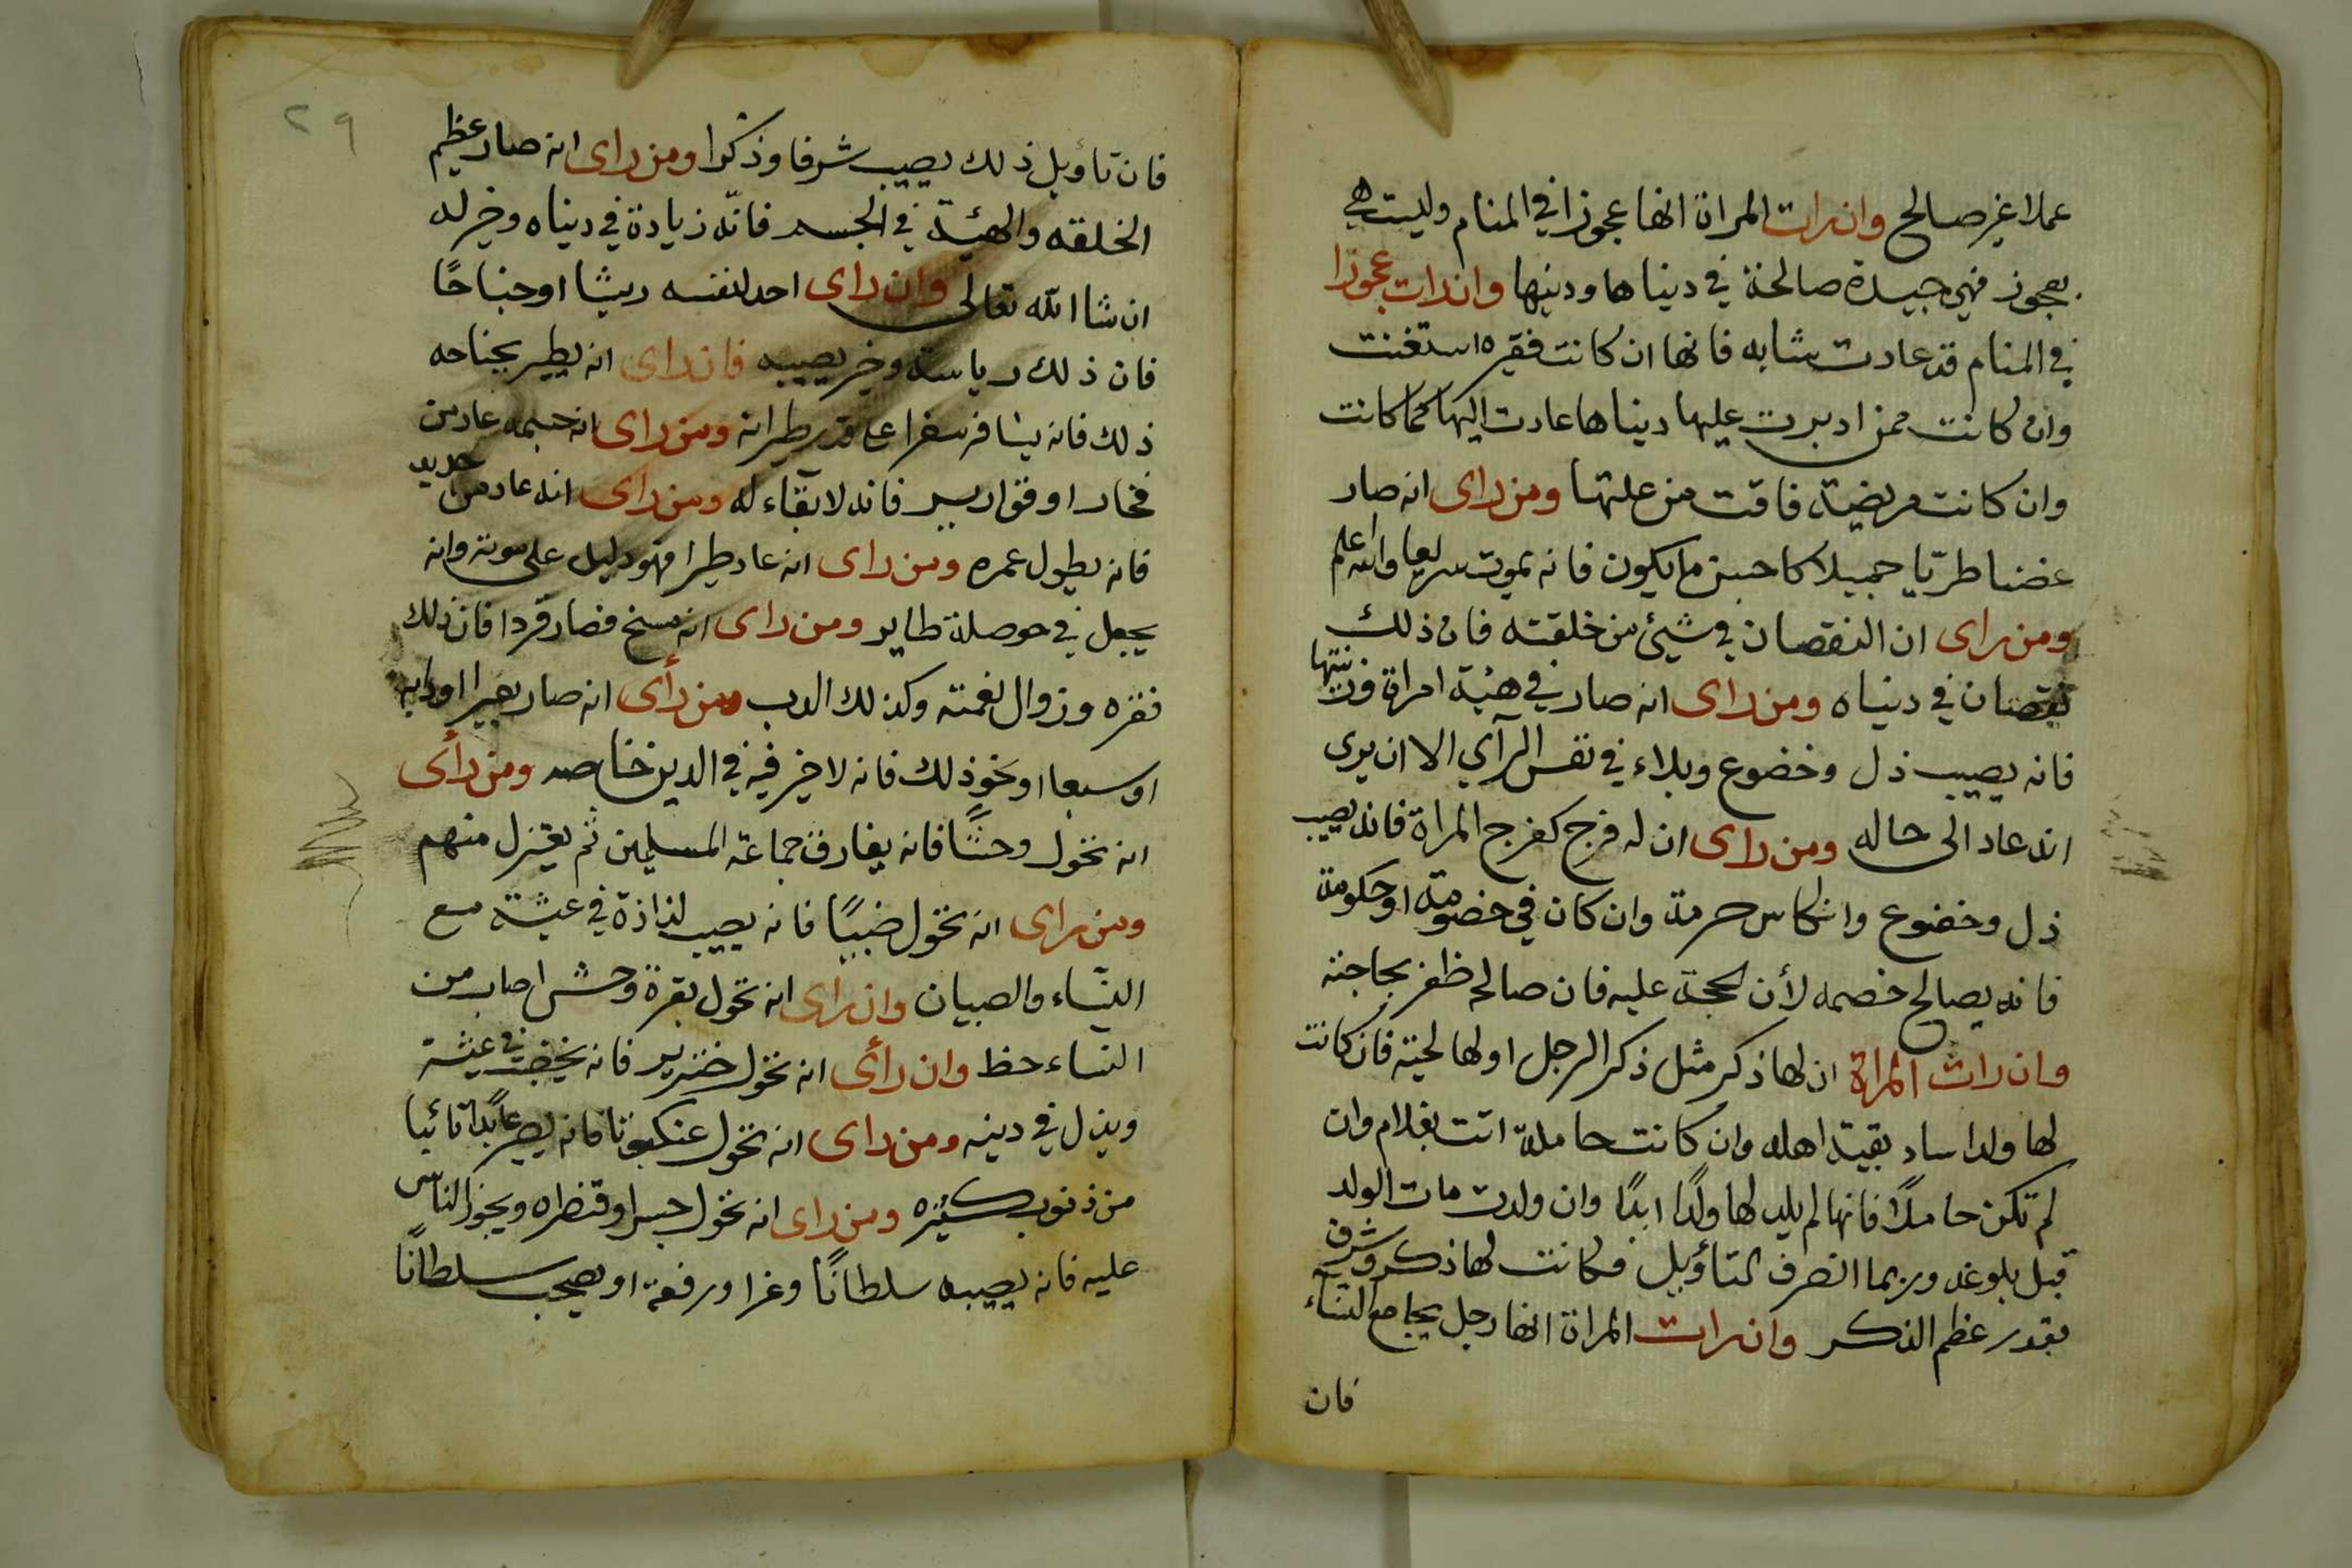 عملا غير صالح وان رات المراة انها عجوزا في المنام وليست هي
بعجوز فهي جيدة صالحة في دنياها ودينها وان رات عجوزا
في المنام قد عادت شابه فانها ان كانت فقيره استغنت
وان كانت ممن ادبرت عليها دنياها عادت اليها كما كانت
وان كانت مريضة فاقت من علتها ومن راى انه صار
غضنا طريّا جميلا كاحسن ما يكون فانه يموت سريعا والله اعلم
ومن راى ان النقصان في شيئ من خلقته فان ذلك
نقصان في دنياه ومن راى انه صار في هيئة امراة وزينتها
فانه يصيب ذل وخضوع وبلاء في نفس الرآي الا ان يرى
انه عاد الى حاله ومن راى ان له فرج كفرج المراة فانه يصيب
ذل وخضوع وانكاس حرمة وان كان في خصومة او حكومة
فانه يصالح خصمه لأن الحجة عليه فان صالحه ظفر بحاجته
وان رات المراة ان لها ذكر مثل ذكر الرجل او لها لحيته فان كانت
لها ولد اساد بقية اهله وان كانت حاملة اتت بغلام وان
لم تكن حاملاً فانها لم يلد لها ولدًا ابدًا وان ولدت مات الولد
قبل بلوغه وربما انصرف التأويل فكانت لها ذكر وشرف
بقدر عظم الذكر وان رات المراة انها رجل يجامع النساء
فان
٢٩
فان تاؤيل ذلك يصيب شرفا وذكرا ومن راى انه صار عظيم
الخلقه والهيئة في الجسد فانّه زيادة في دنياه وخير له
ان شا الله تعالى وان راى احد لنفسه ريشا او جناحًا
فان ذلك رياسة وخير يصيبه فان راى انه يطير بجناحه
ذلك فانه يسافر سفرا على قدر طيرانه ومن راى انه جسمه عاد من
فخار او قوارير فانه لا بقاء له ومن راى انه عاد من حديد
فانه يطول عمره ومن راى انه عاد طيرا فهو دليل على موته وانه
يجعل في حوصلة طاير ومن راى انه مسخ فصار قردا فان ذلك
فقره وزوال نعمته وكذلك الدب ومن رأى انه صار بعيرا او دابه
او سبعا او نحو ذلك فانه لا خير فيه في الدين خاصه ومن رأى
انه تحول وحشًا فانه يفارق جماعة المسلمين ثم يعتزل منهم
ومن راى انه تحول ضبيًا فانه يصيب لذاذة في عيشة مع
النساء والصبيان وان راى انه تحول بقرة وحش اصاب من
النساء حظ وان رأى انه تحول خنزير فانه يخصب في عيشة
ويذل في دينه ومن راى انه تحول عنكبوتا فانه يصير عابدًا تائبا
من ذنوب كثيره ومن راى انه تحول جسرا وقنطره ويجوز الناس
عليه فانه يصيبه سلطانًا وعزا ورفعة او يصحب سلطانًا